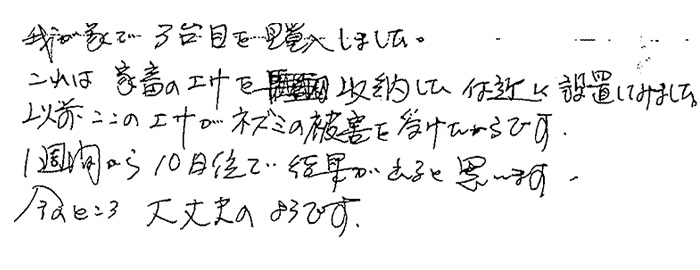 我が家で3台目を購入しました。
これは家畜のエサを収納した付近に設置してみました。
以前ここのエサがネズミの被害を受けたからです.
1週間から10日位で結果が出ると思います.
今のところ大丈夫のようです.